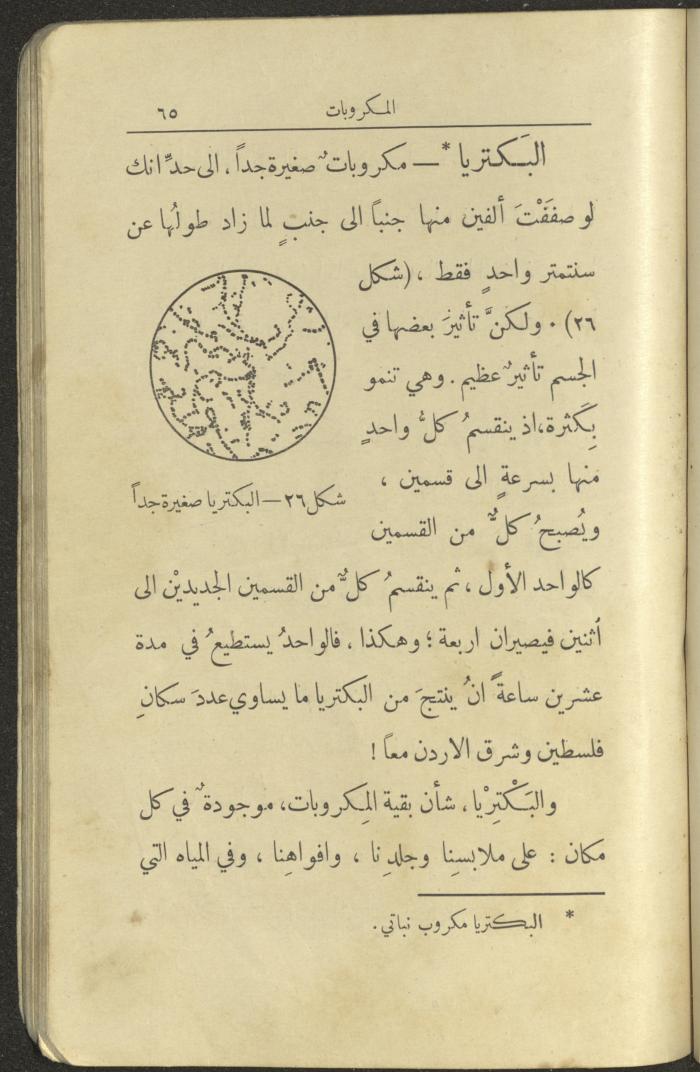 المكروبات ٦٥
البَكتريا * — مكروباتٌ صغيرة جداً ، الى حدِّ انك
لو صفَفْتَ ألفين منها جنباً الى جنبٍ لما زاد طولُها عن
سنتمتر واحدٍ فقط ، (شكل
٢٦) . ولكنَّ تأثيرَ بعضها في
الجسم تأثيرٌ عظيم . وهي تنمو
بِكَثرة، اذ ينقسمُ كلُّ واحدٍ
منها بسرعةٍ الى قسمين ،
ويُصبحُ كلٌّ من القسمين
شكل ٢٦ — البكتريا صغيرة جداً
كالواحد الأول ، ثم ينقسمُ كلٌّ من القسمين الجديديْن الى
أثنين فيصيران اربعة ؛ وهكذا ، فالواحدُ يستطيعُ في مدة
عشرين ساعةً انْ ينتجَ من البكتريا ما يساوي عددَ سكانِ
فلسطين وشرق الاردن معاً !
والبَكْتِرْيا ، شأن بقية المِكروبات ، موجودةٌ في كل
مكان : على ملابسِنا وجلدِنا ، وافواهِنا ، وفي المياه التي
* البكتريا مكروب نباتي .